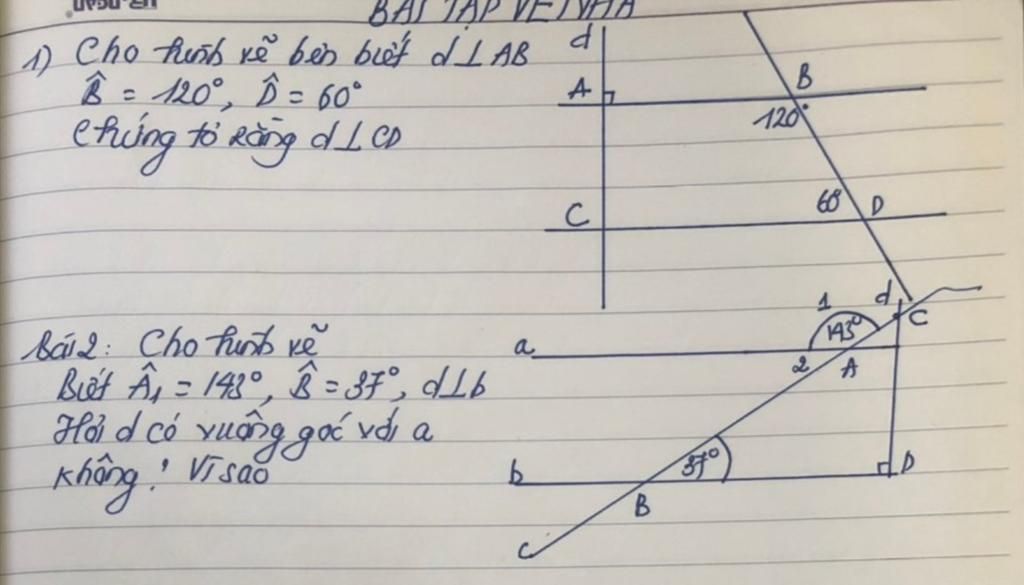 BÀI TẬP VỀ NHÀ
1) Cho hình vẽ bên biết d⊥AB
B̂ = 120°, D̂ = 60°
Chứng tỏ rằng d⊥CD
d
A
B
120°
60°
D
C
Bài 2: Cho hình vẽ
Biết Â₁ = 143°, B̂ = 37°, d⊥b
Hỏi d có vuông góc với a
không? Vì sao
1
d
C
143°
a
2
A
37°
b
D
B
c